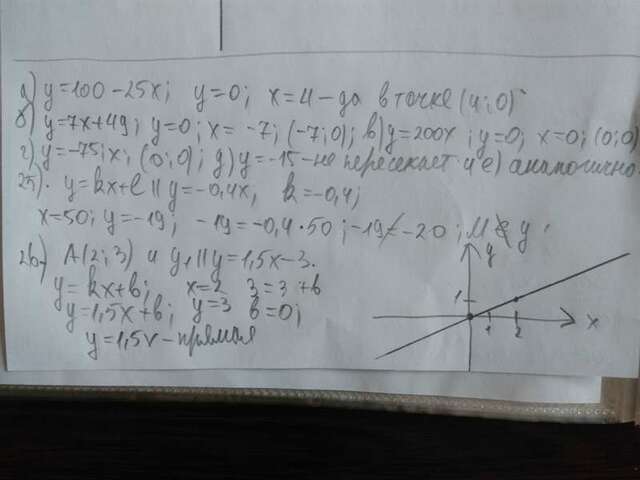 а) y=100-25x; y=0; x=4-да в точке (4;0)
б) y=7x+49; y=0; x=-7; (-7;0); в) y=200x; y=0; x=0; (0;0)
г) y=-75;x; (0;0); д) y=-15-не пересекает и е) аналогично.
25). y=kx+l || y=-0,4x, k=-0,4;
x=50; y=-19; -19=-0,4·50; -19≠-20; M∉y
26) A(2;3) и y₁||y=1,5x-3.
y=kx+b; x=2 3=3+b
y=1,5x+b; y=3 b=0;
y=1,5x-прямая
y
1
1 2 x